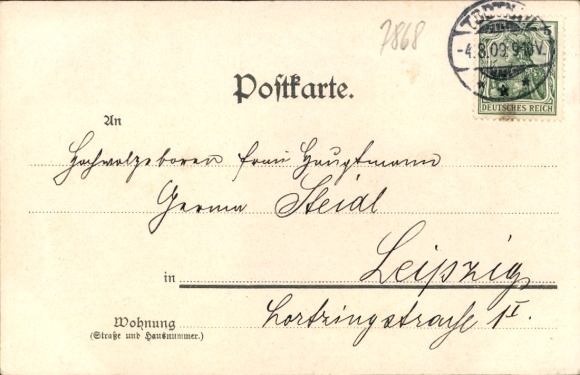 7868
-4.8.09. 9-10V.
5
DEUTSCHES REICH
Postkarte.
An
Hochwolgeboren Frau Hauptmann
Germa Steidl
in Leipzig
Wohnung
(Straße und Hausnummer.)
Lortzingstrasse 1 I.